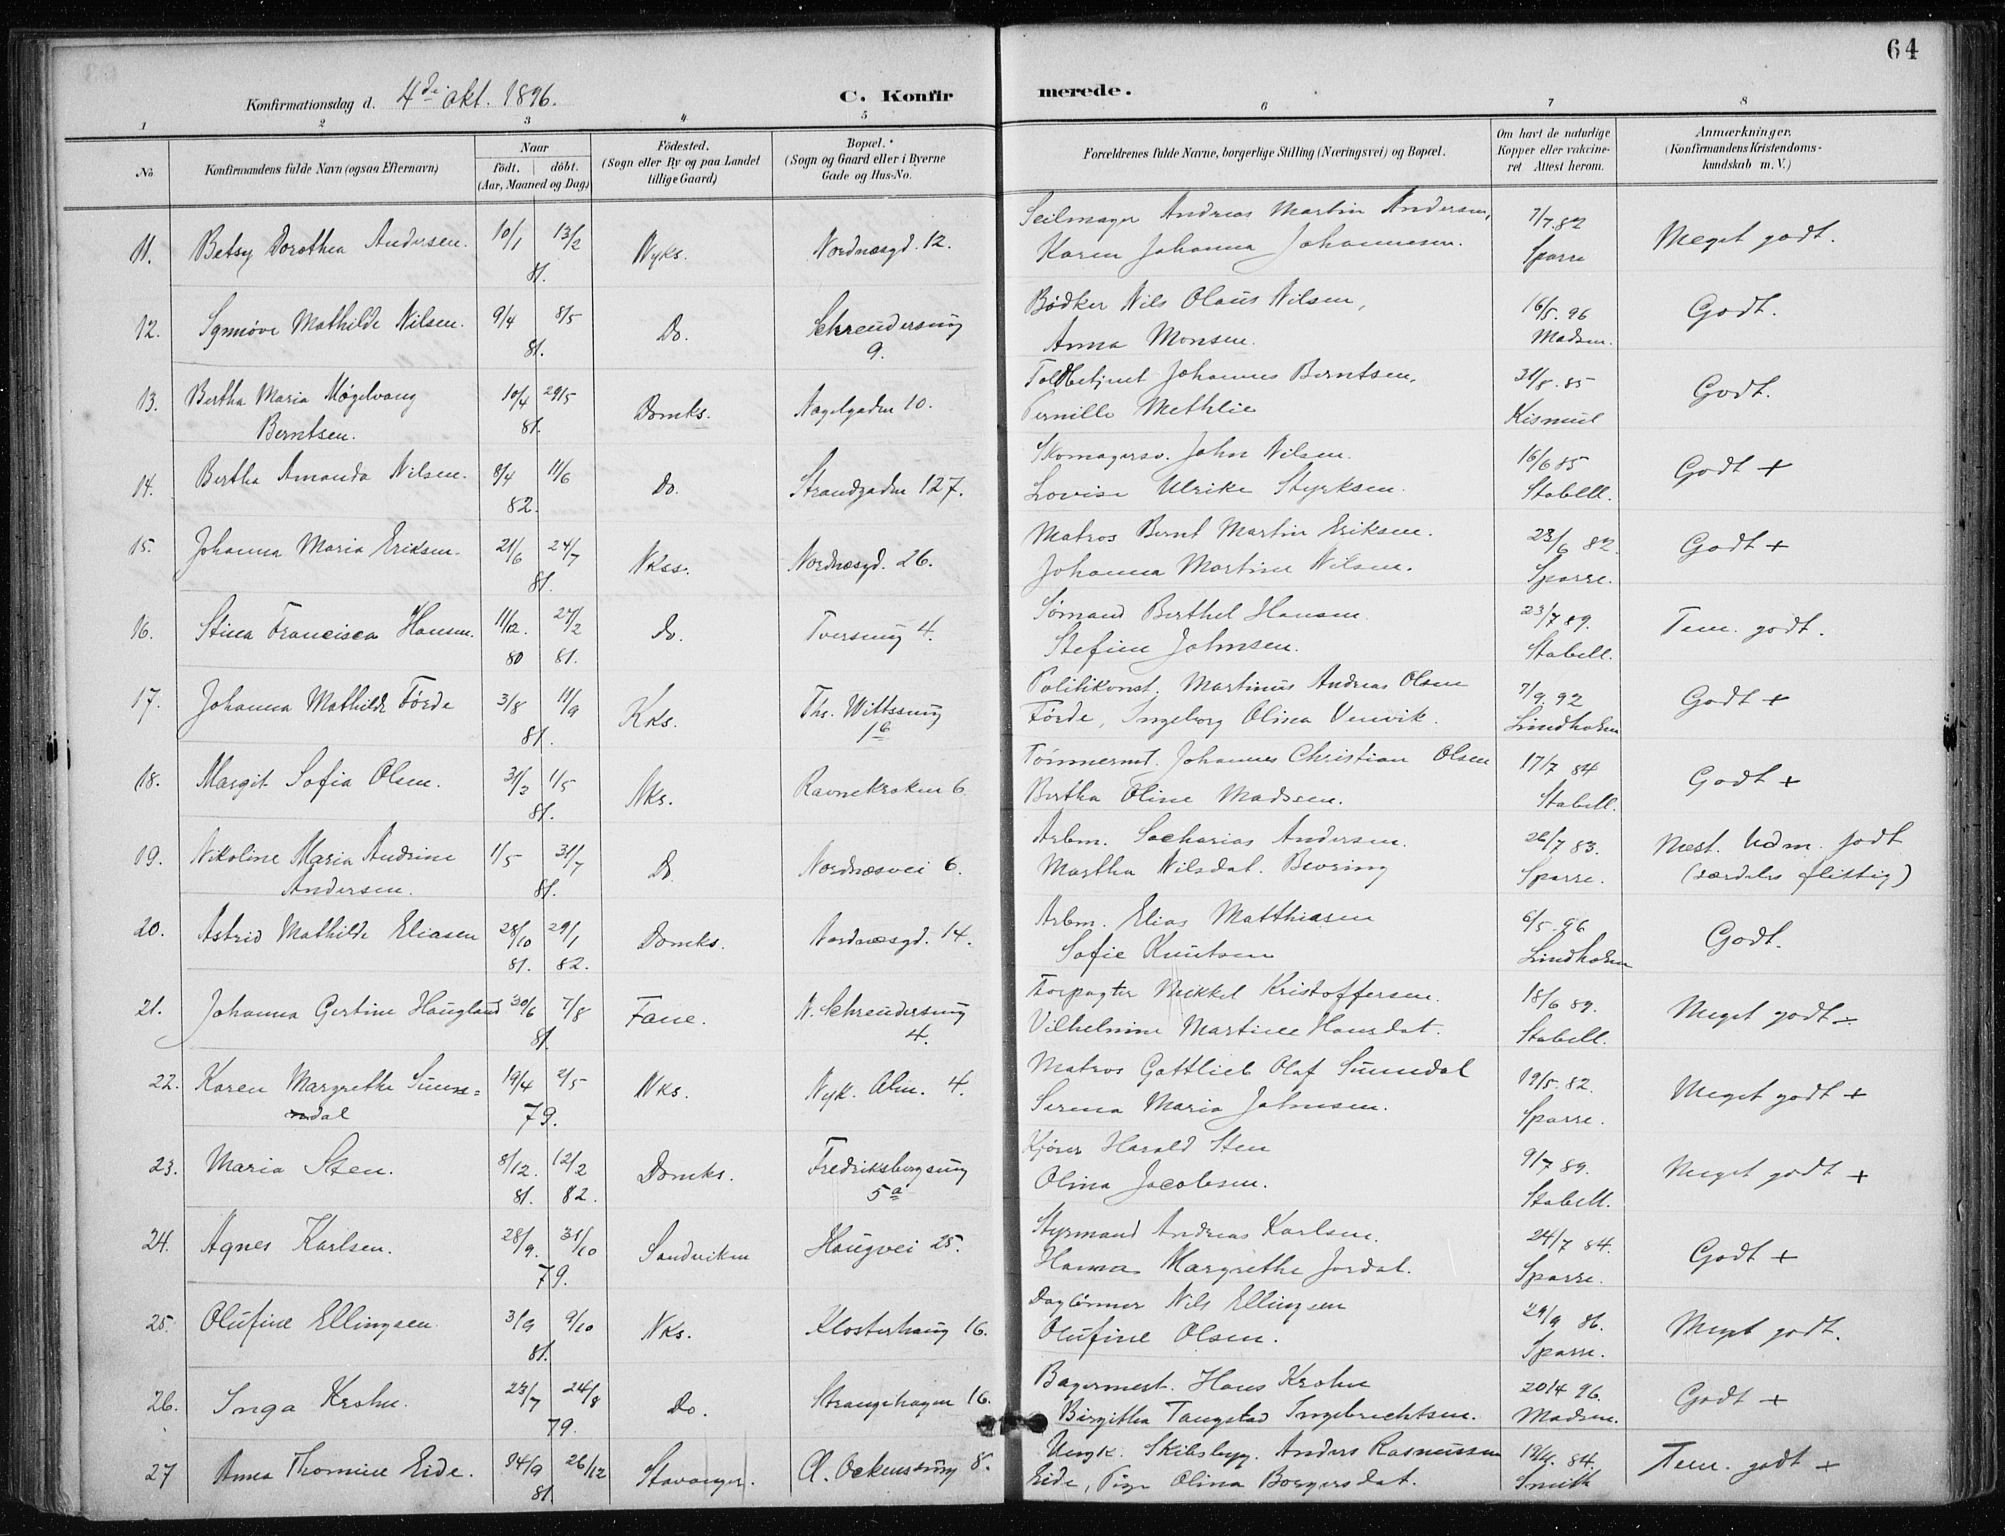 64
Konfirmationsdag d. 4de okt. 1896.
C. Konfirmerede.
1 2 3 4 5 6 7 8
No.
Konfirmandens fulde Navn (ogsaa Efternavn)
Naar
födt. döbt.
(Aar, Maaned og Dag)
Födested.
(Sogn eller By og paa Landet
tillige Gaard)
Bopæl.
(Sogn og Gaard eller i Byerne
Gade og Hus-No.
Forældrenes fulde Navne, borgerlige Stilling (Næringsvei) og Bopæl.
Om havt de naturlige
Kopper eller vakcine-
ret Attest herom.
Anmærkninger.
(Konfirmandens Kristendoms-
kundskab m. V.)
11. Betsy Dorothea Andersen. 10/1 13/2 81. Nyks. Nordnæsgd. 12.
Seilmager Andreas Martin Andersen, 7/7.82 Meget godt.
Karen Johanna Johannesen. Sparre
12. Synnøve Mathilde Nilsen. 9/4 8/5 81. Do. Schreudersmug 9.
Bødker Nils Olaus Nilsen, 16/5.96 Godt.
Anna Monsen. Madsen.
13. Bertha Maria Møgelvang 10/4 29/5 Domks. Nagelgaden 10.
Berntsen. 81.
Toldbetjent Johannes Berntsen, 31/8.85 Godt.
Pernille Methlie Kismul
14. Bertha Amanda Nilsen. 8/4 11/6 82. Do. Strandgaden 127.
Skomagersv. John Nilsen. 16/6 85 Godt +
Lovise Ulrike Styrksen. Stabell.
15. Johanna Maria Eriksen. 21/6 24/7 81. Nkss. Nordnæsgd. 26.
Matros Bernt Martin Eriksen. 23/6 82. Godt +
Johanna Martine Nilsen. Sparre.
16. Stina Francisca Hansen. 11/12. 27/2 80 81. Do. Tversmug 4.
Sømand Berthel Hansen 23/7 89. Tem. godt.
Stefine Johnsen. Stabell.
17. Johanna Mathilde Førde 3/8 11/9 81. Kks. Ths. Wittssmug 1b
Politikonst. Martinus Andreas Olsen 7/9.92 Godt +
Førde, Ingeborg Olina Venvik. Lindholm
18. Margit Sofia Olsen. 31/3 1/5 81. Nks. Ravnekroken 6
Tømmermd. Johannes Christian Olsen 17/7 84 Godt +
Bertha Oline Madssen. Stabell.
19. Nikoline Maria Andrine 1/5 31/7 Do. Nordnæsvei 6.
Andersen. 81.
Arbm. Sacharias Andersen. 26/7 83. Mest. Udm. godt
Martha Nilsdat. Bevring Sparre. (særdeles flittig)
20. Astrid Mathilde Eliasen 28/10 29/1 81. 82. Domks. Nordnæsgd. 14.
Arbm. Elias Matthiasen 6/5.96 Godt.
Sofie Knutsen Lindholm
21. Johanna Gertine Haugland 30/6 7/8 81. Fane. N. Schreudersmug 4.
Forpagter Mikkel Kristoffersen. 18/6 89. Meget godt +
Vilhelmine Martine Hansdat. Stabell.
22. Karen Margrethe Sunn= 19/4 2/5 Nks. Nyk. Alm. 4.
dal 79.
Matros Gottlieb Olaf Sunndal 19/5.82. Meget godt +
Serena Maria Johnsen. Sparre.
23. Maria Sten. 8/12. 12/2 81. 82. Domks. Fredriksbergsmug 5a
Kjører Harald Sten 9/7 89. Meget godt +
Olina Jacobsen. Stabell.
24. Agnes Karlsen. 28/9. 31/10 79. Sandviken Haugvei 25.
Styrmand Andreas Karlsen. 24/7 84. Godt +
Hanna Margrethe Jordal. Sparre.
25. Olufine Ellingsen. 3/9 9/10 81. Nks. Klosterhaug 16.
Daglønner Nils Ellingsen 29/9 86. Meget godt.
Olufine Olsen. Sparre.
26. Inga Krohn. 23/7 24/8 79. Do. Strangehagen 16.
Bagermest. Hans Krohn 20/4 96. Godt +
Birgitha Tangstad Ingebrechtsen. Madsen.
27 Anna Thomine Eide. 24/9 26/12 81. Stavanger. Cl. Ockenssmug 8.
Ungk. Skibsbygg. Anders Rasmussen 84. Tem. godt +
Eide, Pige Olina Borgersdat. Smith